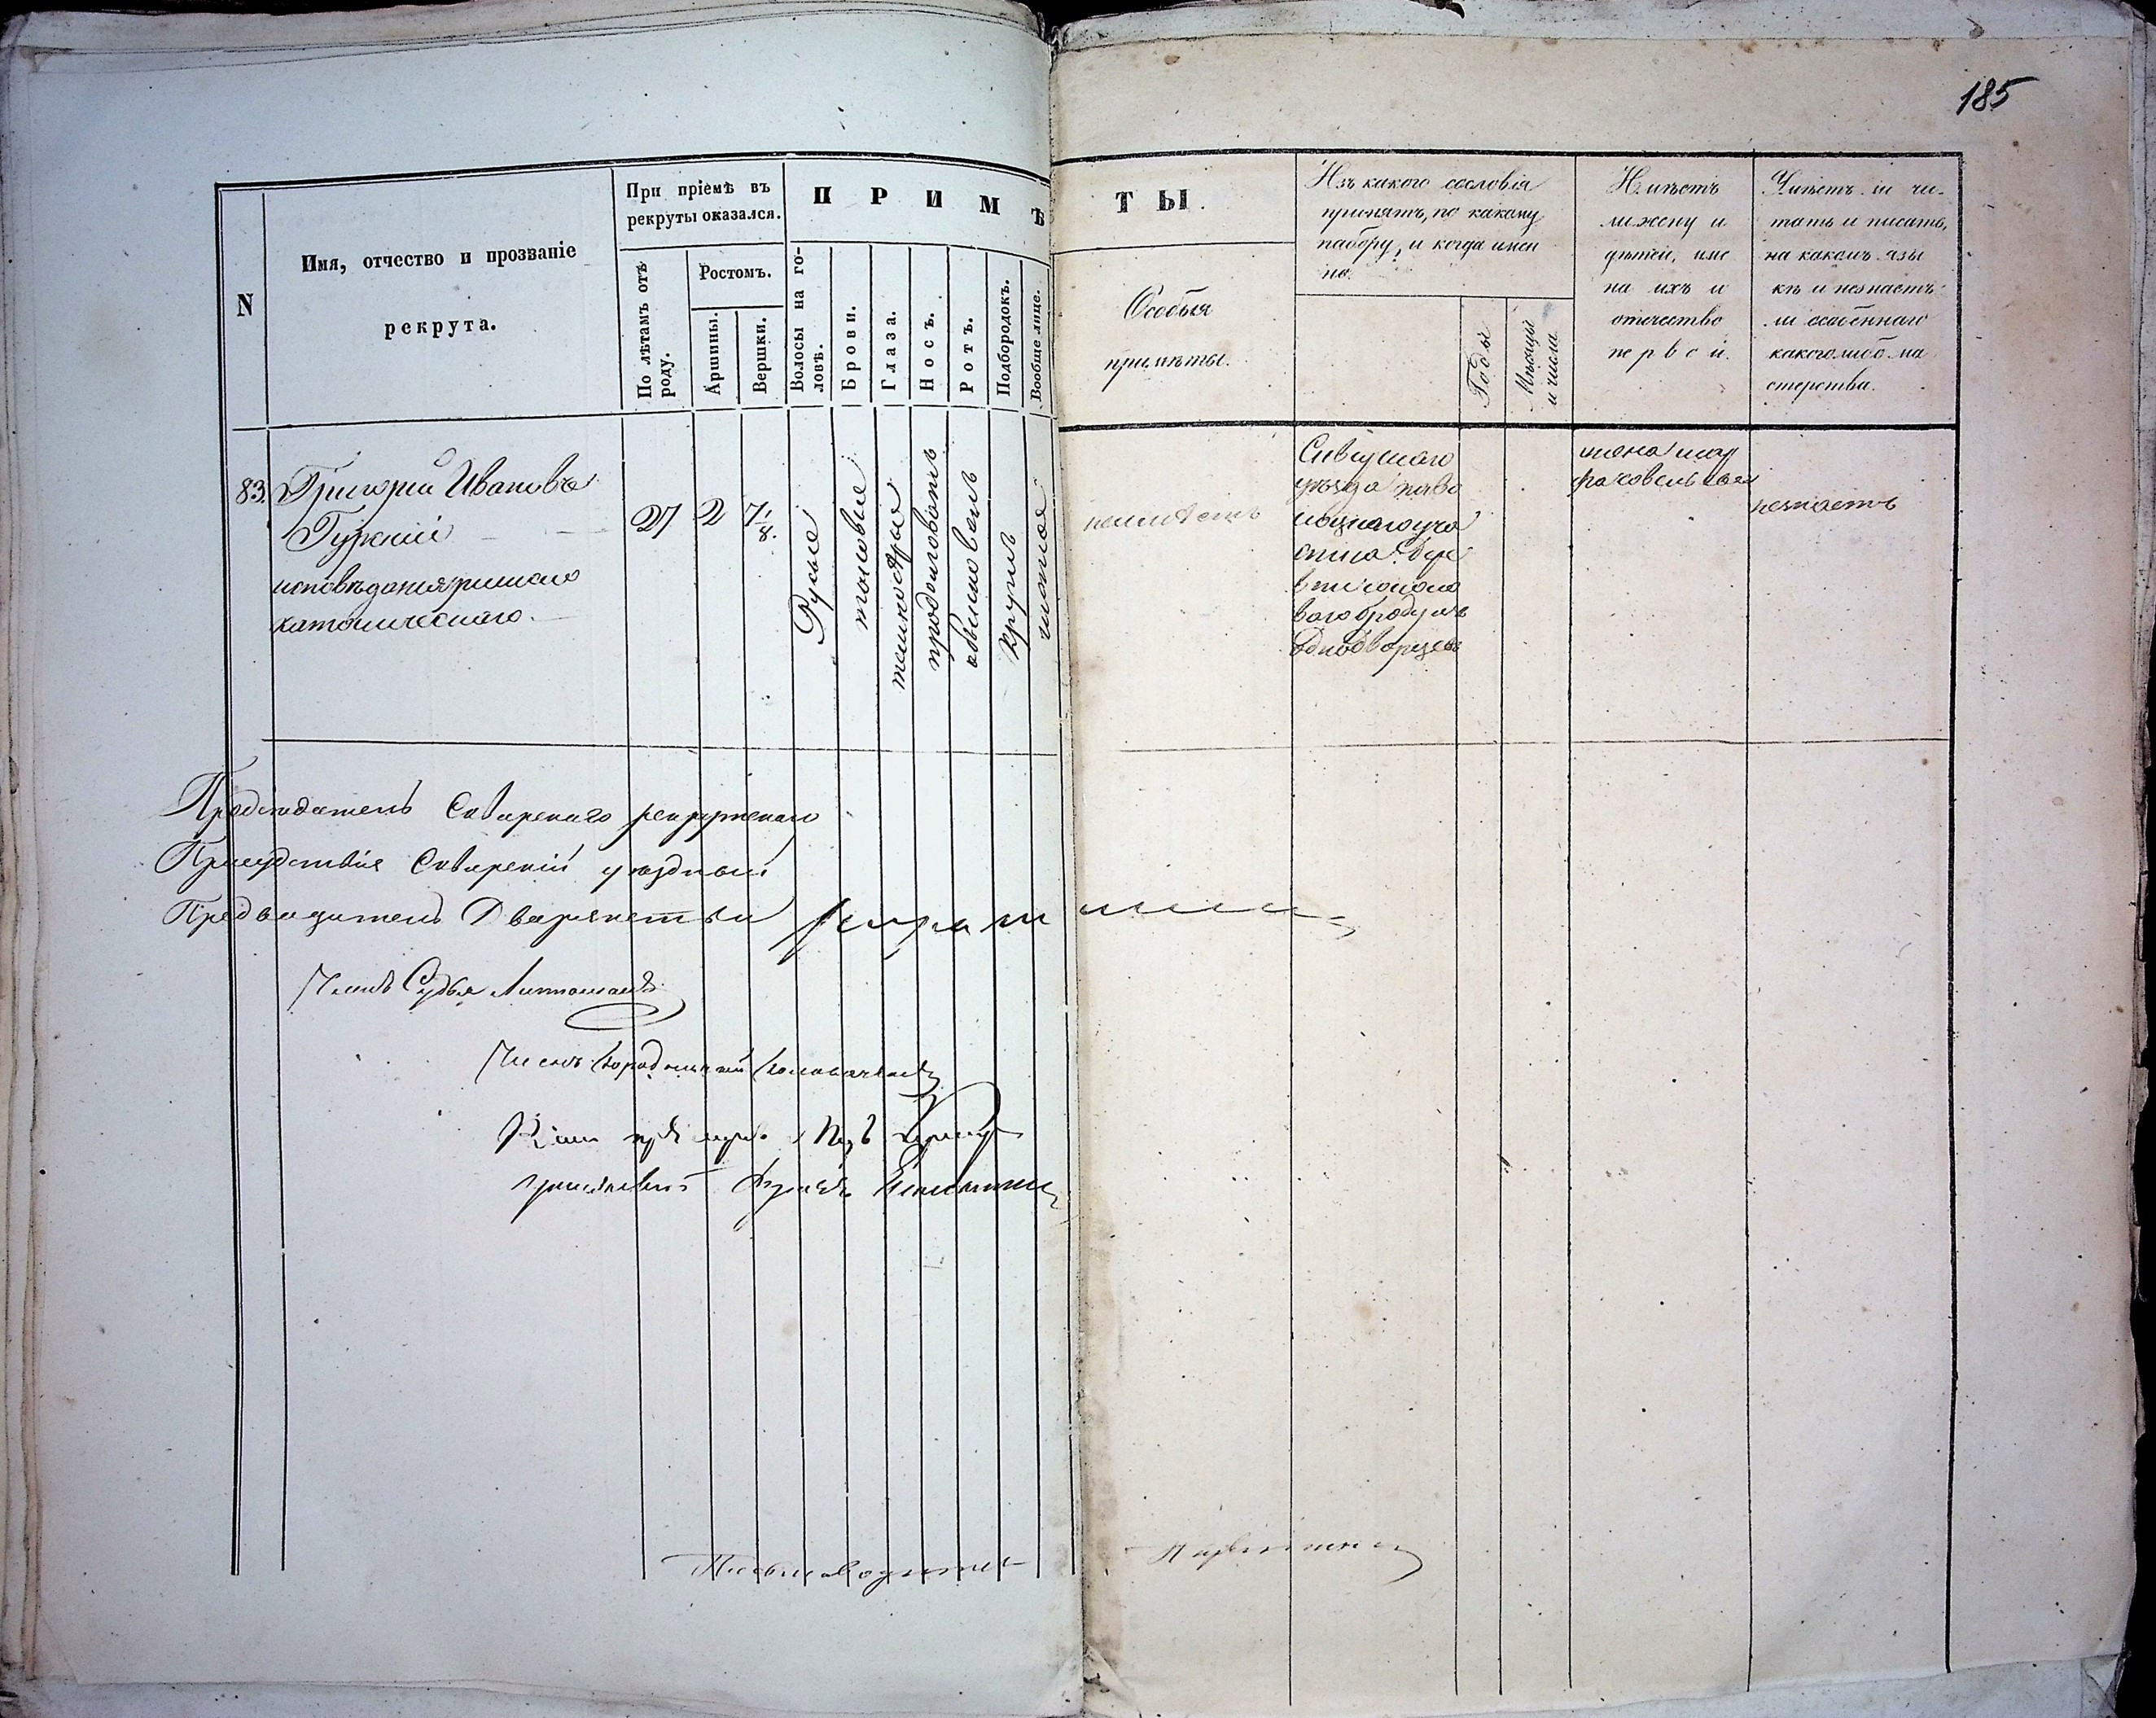 185
N
Имя, отчество и прозваніе
рекрута.
При пріемѣ въ
рекруты оказался.
По лѣтамъ отъ
роду.
Ростомъ.
Аршины.
Вершки.
ПРИМѢ
Волосы на го-
ловѣ.
Брови.
Глаза.
Носъ.
Ротъ.
Подбородокъ.
Вообще лице.
ТЫ.
Особыя
примѣты.
Изъ какого сословія
принятъ, по какому
набору, и когда имен
но.
Годы
Мѣсяцы
и числа
Имѣетъ
ли жену и
дѣтей, име
на ихъ и
отечество
первой.
Умѣетъ ли чи-
тать и писать,
на какомъ язы
кѣ и незнаетъ
ли особеннаго
какоголибо ма
стерства.
83.
Григорій Ивановъ
Гурскій
исповѣданія римско
католическаго.
27
2
7 1/8.
Русые
таковые
темносѣрые
продолговатъ
обыкновенъ
круглъ
чистое
неимѣетъ
Сквирскаго
уѣзда
участка Дере
вни
Однодворцевъ
жена
незнаетъ
Предсѣдатель Сквирскаго рекрутскаго
Присудствія Сквирскій уѣздный
Предводитель Дворянства
Членъ Судья
Членъ Городничій
Письмоводитель